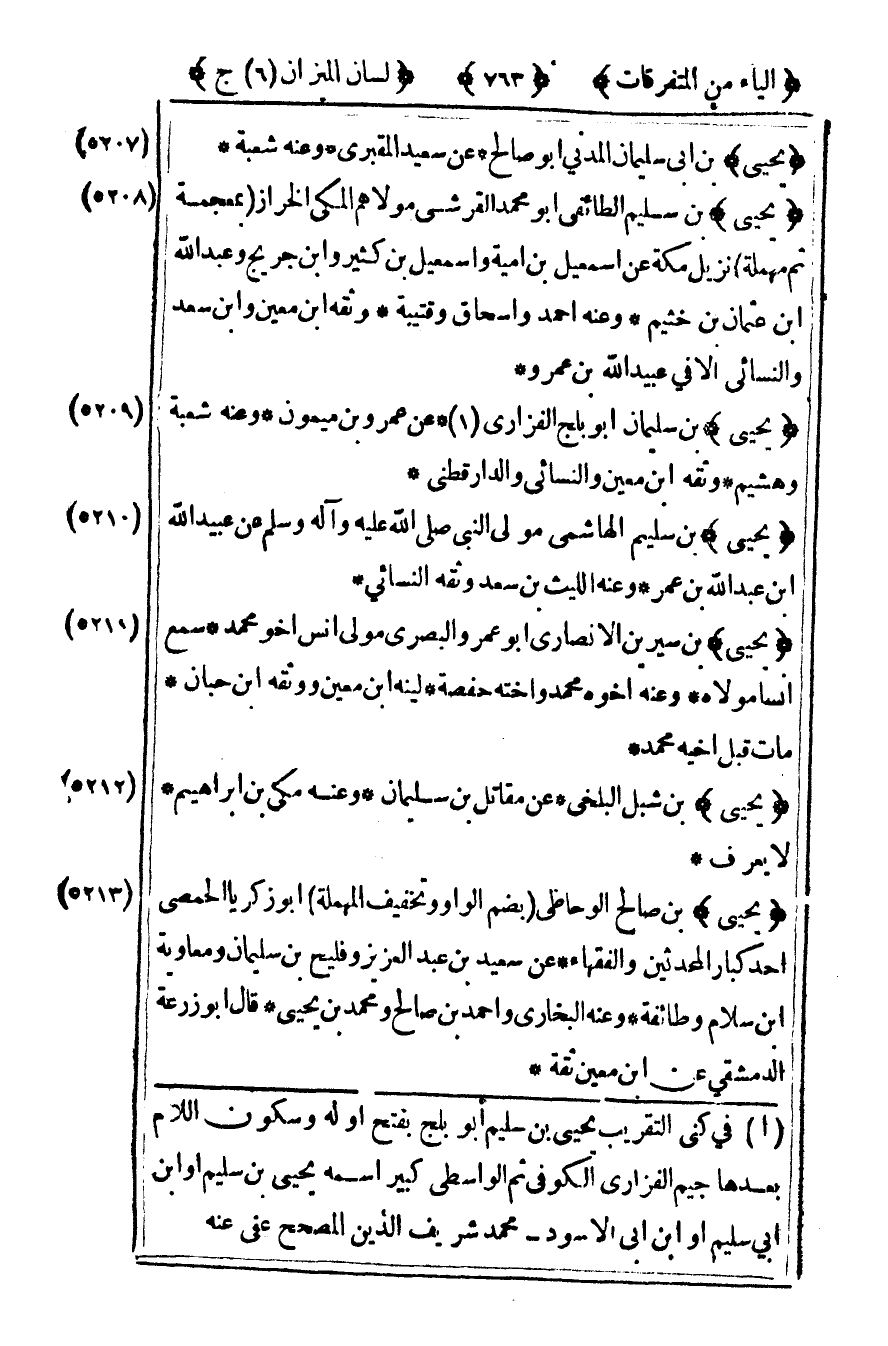 ﴿ الياء من المتفرقات ﴾ ﴿ ٧٦٣ ﴾ ﴿ لسان الميزان (٦) ج ﴾
﴿ يحيى ﴾ بن ابى سليمان المدني ابو صالح * عن سعيد المقبرى * وعنه شعبة * (٥٢٠٧)
﴿ يحيى ﴾ بن سليم الطائفى ابو محمد القرشى مولاهم المكى الخراز (بمعجمة (٥٢٠٨)
ثم مهملة) نزيل مكة عن اسمعيل بن امية واسمعيل بن كثير وابن جريج وعبدالله
ابن عثمان بن خثيم * وعنه احمد واسحاق وقتيبة * وثقه ابن معين وابن سعد
والنسائى الا في عبيدالله بن عمرو *
﴿ يحيى ﴾ بن سليمان ابو بلج الفزارى (١) * عن عمرو بن ميمون * وعنه شعبة (٥٢٠٩)
وهشيم * وثقه ابن معين والنسائى والدارقطنى *
﴿ يحيى ﴾ بن سليم الهاشمى مولى النبي صلى الله عليه وآله وسلم عن عبيدالله (٥٢١٠)
ابن عبدالله بن عمر * وعنه الليث بن سعد وثقه النسائي *
﴿ يحيى ﴾ بن سيرين الانصارى ابو عمرو البصرى مولى انس اخو محمد * سمع (٥٢١١)
انسا مولاه * وعنه اخوه محمد واخته حفصة * لينه ابن معين ووثقه ابن حبان *
مات قبل اخيه محمد *
﴿ يحيى ﴾ بن شبل البلخى * عن مقاتل بن سليمان * وعنه مكى بن ابراهيم * (٥٢١٢)
لا يعرف *
﴿ يحيى ﴾ بن صالح الوحاظى (بضم الواو وتخفيف المهملة) ابو زكريا الحمصى (٥٢١٣)
احد كبار المحدثين والفقهاء * عن سعيد بن عبد العزيز وفليح بن سليمان ومعاوية
ابن سلام وطائفة * وعنه البخارى واحمد بن صالح ومحمد بن يحيى * قال ابو زرعة
الدمشقي عن ابن معين ثقة *
(١) في كنى التقريب يحيى بن سليم أبو بلج بفتح اوله وسكون اللام
بعدها جيم الفزارى الكوفى ثم الواسطى كبير اسمه يحيى بن سليم او ابن
ابي سليم او ابن ابى الاسود ــ محمد شريف الدين المصحح عفى عنه